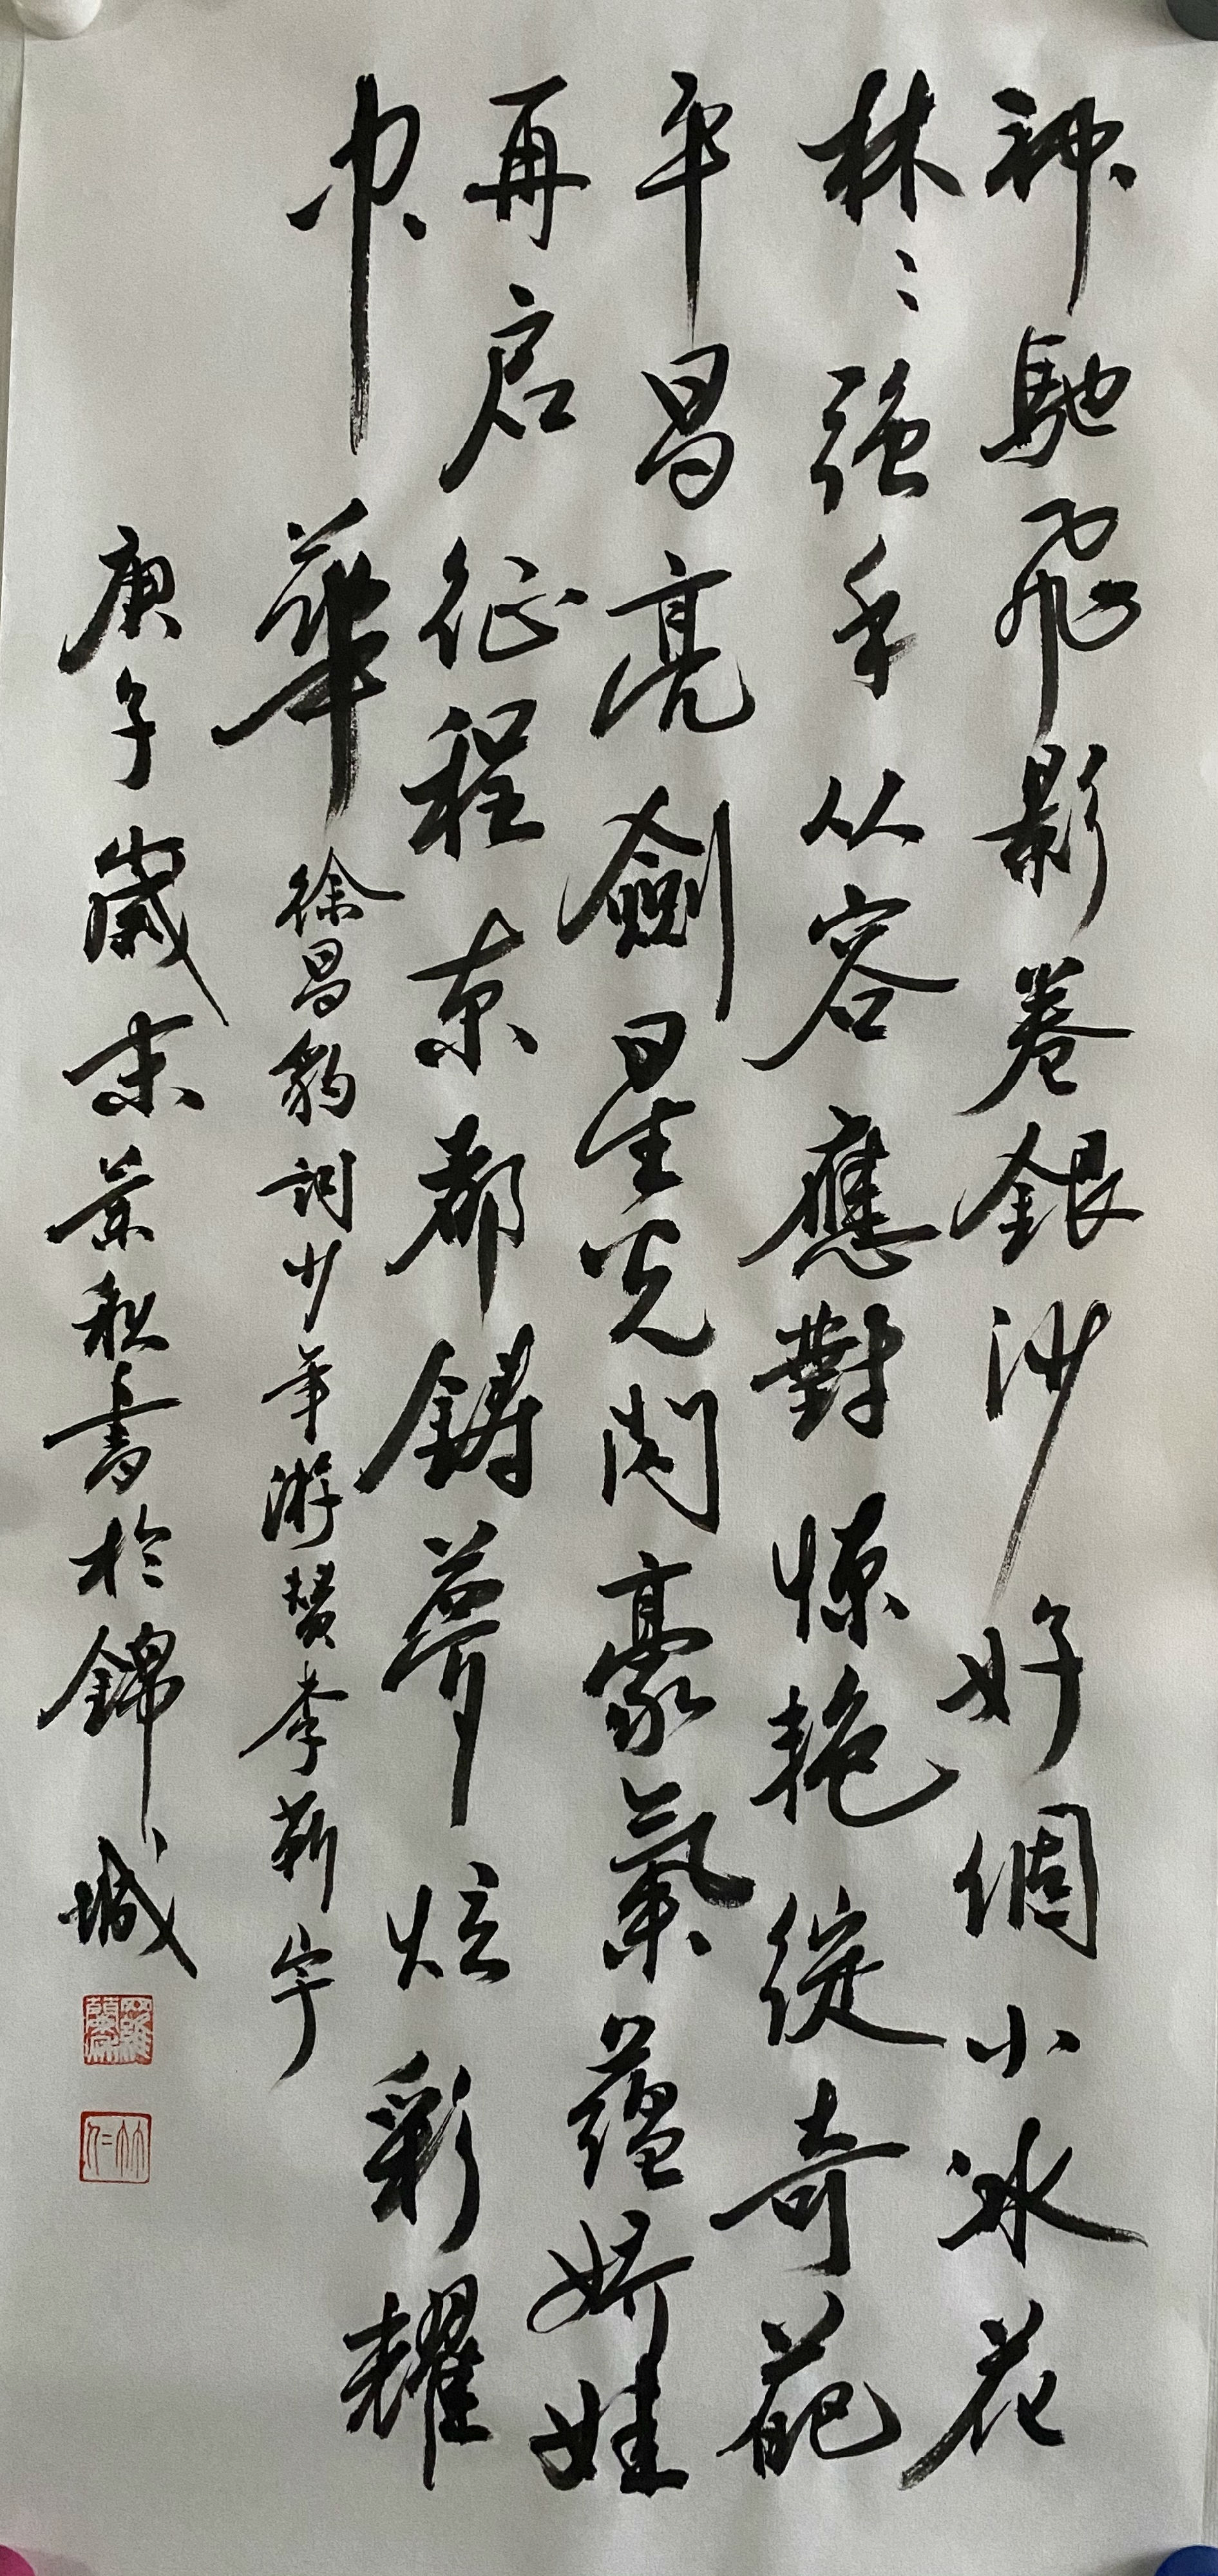 神馳飛影卷銀沙好個小冰花
林〻强手从容應對惊艳綻奇葩
平昌亮劍星光閃豪氣蘊娇娃
再启征程京都鑄夢炫彩耀
巾華徐昌豹词少年游赞李靳宇
庚子歲末景秋書於錦城